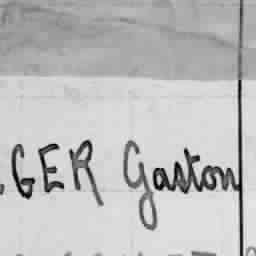 GER Gaston